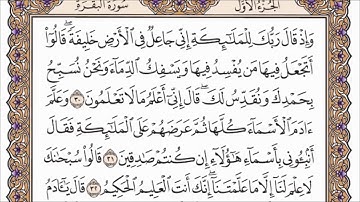 الجزء الأول سورة البقرة
وَإِذْ قَالَ رَبُّكَ لِلْمَلَٰٓئِكَةِ إِنِّى جَاعِلٌ فِى ٱلْأَرْضِ خَلِيفَةً ۖ قَالُوٓا۟
أَتَجْعَلُ فِيهَا مَن يُفْسِدُ فِيهَا وَيَسْفِكُ ٱلدِّمَآءَ وَنَحْنُ نُسَبِّحُ
بِحَمْدِكَ وَنُقَدِّسُ لَكَ ۖ قَالَ إِنِّىٓ أَعْلَمُ مَا لَا تَعْلَمُونَ ٣٠ وَعَلَّمَ
ءَادَمَ ٱلْأَسْمَآءَ كُلَّهَا ثُمَّ عَرَضَهُمْ عَلَى ٱلْمَلَٰٓئِكَةِ فَقَالَ
أَنۢبِـُٔونِى بِأَسْمَآءِ هَٰٓؤُلَآءِ إِن كُنتُمْ صَٰدِقِينَ ٣١ قَالُوا۟ سُبْحَٰنَكَ
لَا عِلْمَ لَنَآ إِلَّا مَا عَلَّمْتَنَآ ۖ إِنَّكَ أَنتَ ٱلْعَلِيمُ ٱلْحَكِيمُ ٣٢ قَالَ يَٰٓـَٔادَمُ